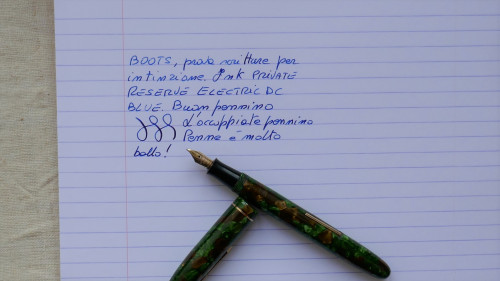 BOOTS, prova scrittura per
intinzione. Ink PRIVATE
RESERVE ELECTRIC DC
BLUE. Buon pennino
L'accoppiata pennino
Penna è molto
bella!